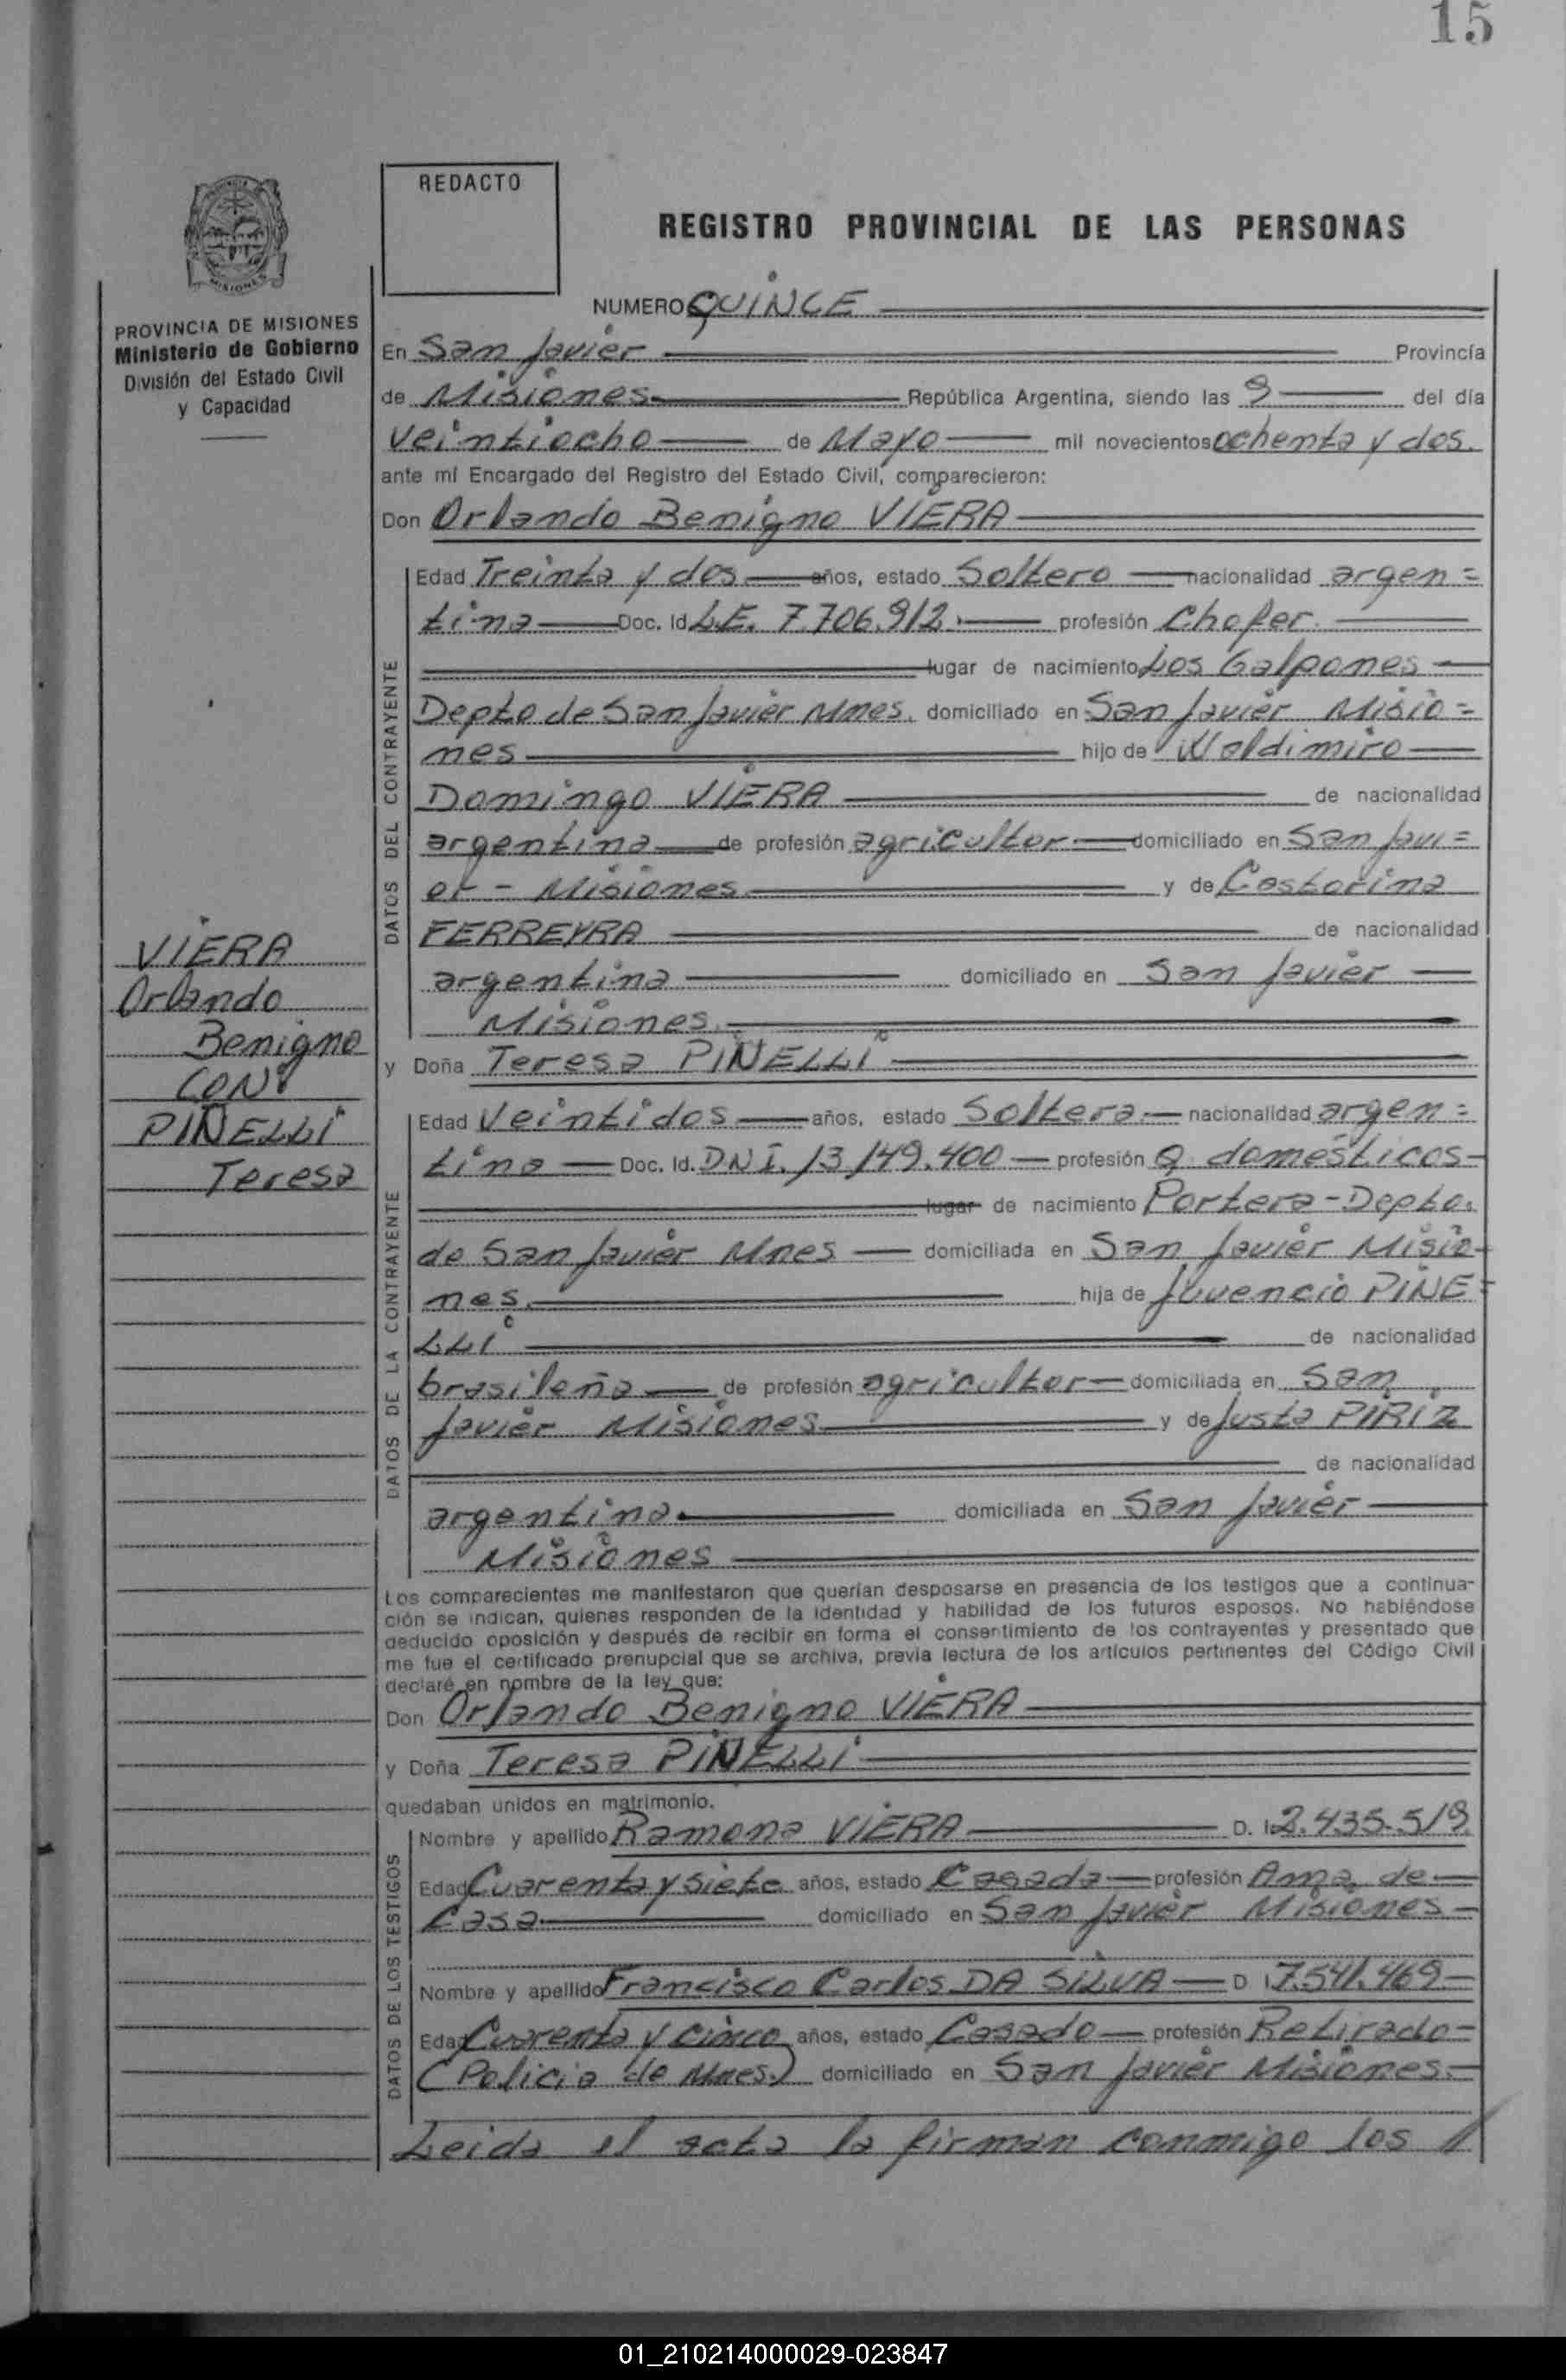 15
REDACTO
REGISTRO PROVINCIAL DE LAS PERSONAS
MISIONES
PROVINCIA DE MISIONES
Ministerio de Gobierno
División del Estado Civil
y Capacidad
NUMERO QUINCE
En San Javier Provincia
de Misiones República Argentina, siendo las 9 del día
veintiocho de Mayo mil novecientos ochenta y dos.
ante mí Encargado del Registro del Estado Civil, comparecieron:
Don Orlando Benigno VIERA
DATOS DEL CONTRAYENTE
Edad Treinta y dos años, estado Soltero nacionalidad argen=
tina Doc. Id. L.E. 7.706.912. profesión Chofer.
lugar de nacimiento Los Galpones
Depto de San Javier Mnes. domiciliado en San Javier Misio=
nes hijo de Waldimiro
Domingo VIERA de nacionalidad
argentina de profesión agricultor domiciliado en San Javi=
er - Misiones y de Castorina
FERREYRA de nacionalidad
argentina domiciliado en San Javier
Misiones.
y Doña Teresa PIÑELLI
VIERA
Orlando
Benigno
CON
PIÑELLI
Teresa
DATOS DE LA CONTRAYENTE
Edad Veintidos años, estado Soltera nacionalidad argen=
tina Doc. Id. DNI. 13.149.400 profesión Q. domésticos
lugar de nacimiento Portera-Depto.
de San Javier Mnes domiciliada en San Javier Misio-
nes. hija de Juvencio PIÑE=
LLI de nacionalidad
brasileña de profesión agricultor domiciliada en San
Javier Misiones y de Justa PIRIZ
de nacionalidad
argentina domiciliada en San Javier
Misiones
Los comparecientes me manifestaron que querían desposarse en presencia de los testigos que a continua-
ción se indican, quienes responden de la identidad y habilidad de los futuros esposos. No habiéndose
deducido oposición y después de recibir en forma el consentimiento de los contrayentes y presentado que
me fue el certificado prenupcial que se archiva, previa lectura de los artículos pertinentes del Código Civil
declaré en nombre de la ley que:
Don Orlando Benigno VIERA
y Doña Teresa PIÑELLI
quedaban unidos en matrimonio.
DATOS DE LOS TESTIGOS
Nombre y apellido Ramona VIERA D. I. 2.435.519.
Edad Cuarenta y siete años, estado Casada profesión Ama de
Casa domiciliado en San Javier Misiones
Nombre y apellido Francisco Carlos DA SILVA D I 7.541.469
Edad Cuarenta y Cinco años, estado Casado profesión Retirado
(Policia de Mnes.) domiciliado en San Javier Misiones.
Leida el acta la firman conmigo los //
01_210214000029-023847